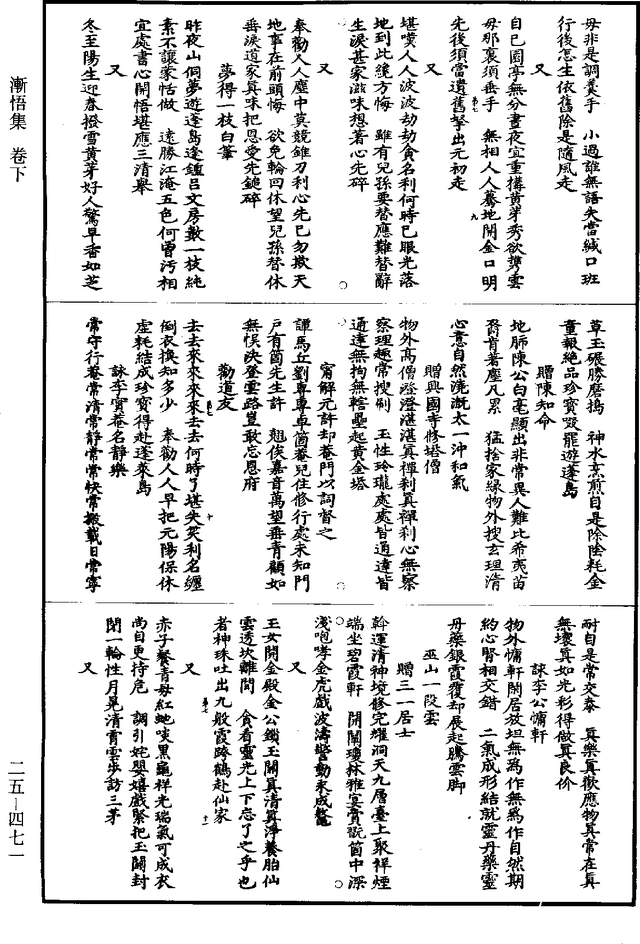 漸悟集　卷下
毋非是調羹手　小過誰無語失當緘口班
行後怎生依舊除是隨風走
又
自已園亭無分晝夜宜重搆黄芽秀欲携雲
毋那裏須垂手　無相人人驀地開金口明
先後須當遺舊拏出元初走
又
堪嘆人人波波劫劫貪名利何時已眼光落
地到此纔方悔　雖有兒孫要替應難替辭
生淚甚家滋味想著心先碎
又
奉勸人人塵中莫競錐刀利心先已勿欺天
地事在前頭悔　欲免輪回休望兒孫替休
垂淚道家真味把恩愛先鎚碎
夢得一枝白筆
昨夜山侗夢遊蓬島逢鍾吕文房數一枝純
素不讓蒙恬做　遠勝江淹五色何曾污相
宜處書心開悟堪應三清舉
又
冬至陽生迎春撥雪黄芽好人驚早香如芝
草玉碾勝磨搗　神水烹煎自是除陰耗金
童報絶品珍寶喫罷遊蓬島
贈陳知命
地肺陳公白毫顯出非常異人難比希夷苗
裔肯著塵凡累　猛捨家緣物外搜玄理清
心意自然洗漑太一沖和氣
贈興國寺修塔僧
物外高僧澄澄湛湛真禪刹真禪刹心無察
察理趣常搜刷　玉性玲瓏處處皆通達皆
通達無拘無轄壘起黄金塔
甯解元許却菴門以詞督之
譚馬丘劉專專卓箇菴兒住修行處未知門
户有箇先生許　翹俟嘉音萬望垂青顧如
無悞決登雲路豈敢忘恩府
勸道友
去去來來來來去去何時了堪失笑利名纏
倒衣換知多少　奉勸人人早把元陽保休
虚耗結成珍寶得赴蓬萊島
詠李實菴名静樂
常守行菴常清常静常常快常搬載日常寧
耐自是常交泰　真樂真歡應物真常在真
無壞真如光彩得做真良价
詠李公慵軒
物外慵軒閑居放坦無爲作無爲作自然期
約心腎相交錯　二氣成形結就靈丹藥靈
丹藥銀霞覆却展起騰雲脚
巫山一段雲
贈三一居士
斡運清神境修完耀洞天九層臺上聚祥煙
端坐碧霞軒　開闡瓊林雅宴賞翫箇中深
淺咆哮金虎戲波濤警動未成𪚥
又
玉女開金殿金公鎖玉關真清真淨養胎仙
雲透坎離間　貪看靈光上下忘了之乎也
者神珠吐出九般霞跨鶴赴仙家
又
赤子餐青母紅虵啖黑龜祥光瑞氣可成衣
尚自更持危　調引姹嬰嬉戲緊把玉關封
閉一輪性月晃清霄雲步訪三茅
又
二五—四七一